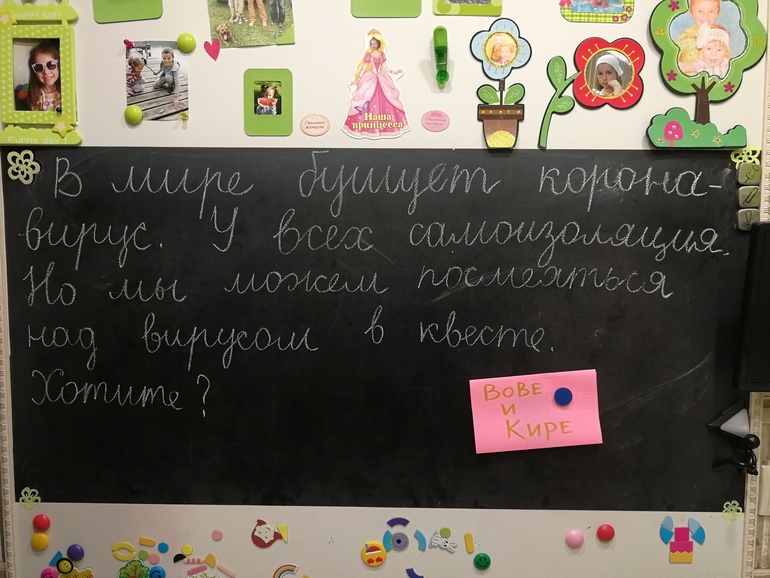 Наша
принцесса
В мире бушует корона-
вирус. У всех самоизоляция.
Но мы можем посмеяться
над вирусом в квесте.
Хотите?
ВОВЕ
И
КИРЕ